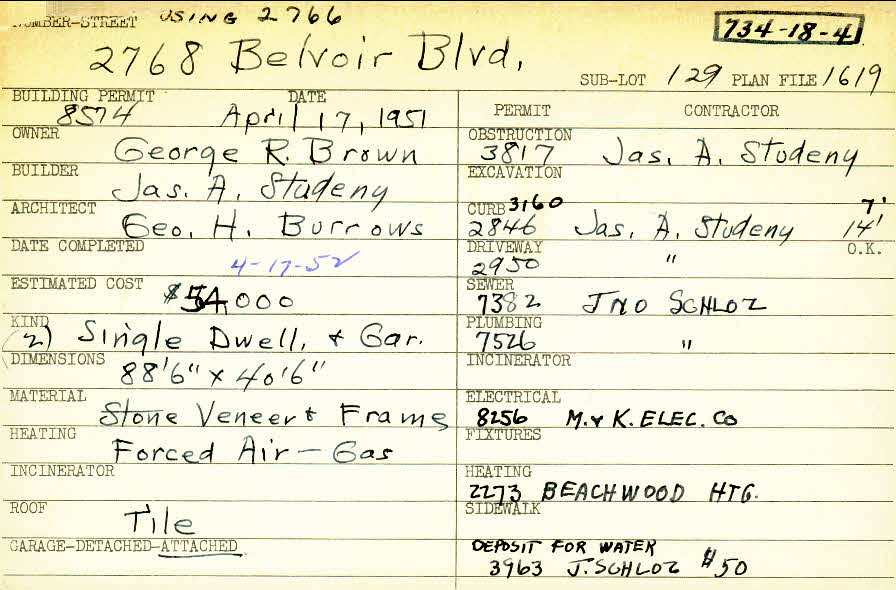 NUMBER-STREET USING 2766
734-18-4
2768 Belvoir Blvd,
SUB-LOT 129 PLAN FILE 1619
BUILDING PERMIT DATE
8574 April 17, 1951
OWNER
George R. Brown
BUILDER
Jas. A. Studeny
ARCHITECT
Geo. H. Burrows
DATE COMPLETED
4-17-52
ESTIMATED COST
$54,000
KIND
(2) Single Dwell, & Gar.
DIMENSIONS
88'6" x 40'6"
MATERIAL
Stone Veneer & Frame
HEATING
Forced Air - Gas
INCINERATOR
ROOF
Tile
GARAGE-DETACHED-ATTACHED
PERMIT CONTRACTOR
OBSTRUCTION
3817 Jas. A. Studeny
EXCAVATION
CURB 3160 7'
2846 Jas. A. Studeny 14'
DRIVEWAY O.K.
2950 "
SEWER
7382 JNO SCHLOZ
PLUMBING
7526 "
INCINERATOR
ELECTRICAL
8256 M. & K. ELEC. CO
FIXTURES
HEATING
2273 BEACHWOOD HTG.
SIDEWALK
DEPOSIT FOR WATER
3963 J. SCHLOZ $50